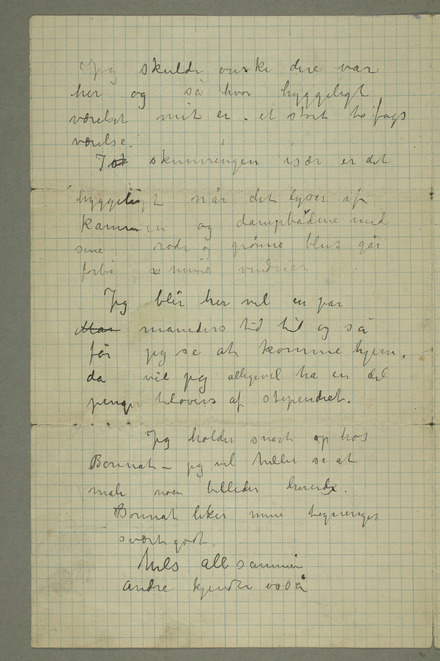 Jeg skulde ønske dere var
her og så hvor hyggeligt
værelset mit er. et stort tofags
værelse.
I skumringen især er det
hyggeligt når det lyser af
kaminen og dampbådene med
sine røde og grønne blus går
forbi mine vinduer
Jeg blir her vel en par
måneders tid til og så
får jeg se at komme hjem.
da vil jeg alligevel ha en del
penger tilovers af stipendiet.
Jeg holder snart op hos
Bonnat – jeg vil heller se at
male noen billeder
Bonnat liker mine tegninger
svært godt.
Hils allesammen
andre kjendte også